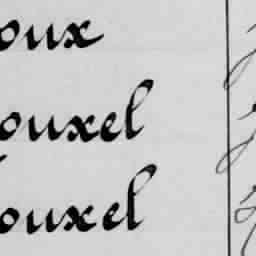 oux
ouxel
ouxel